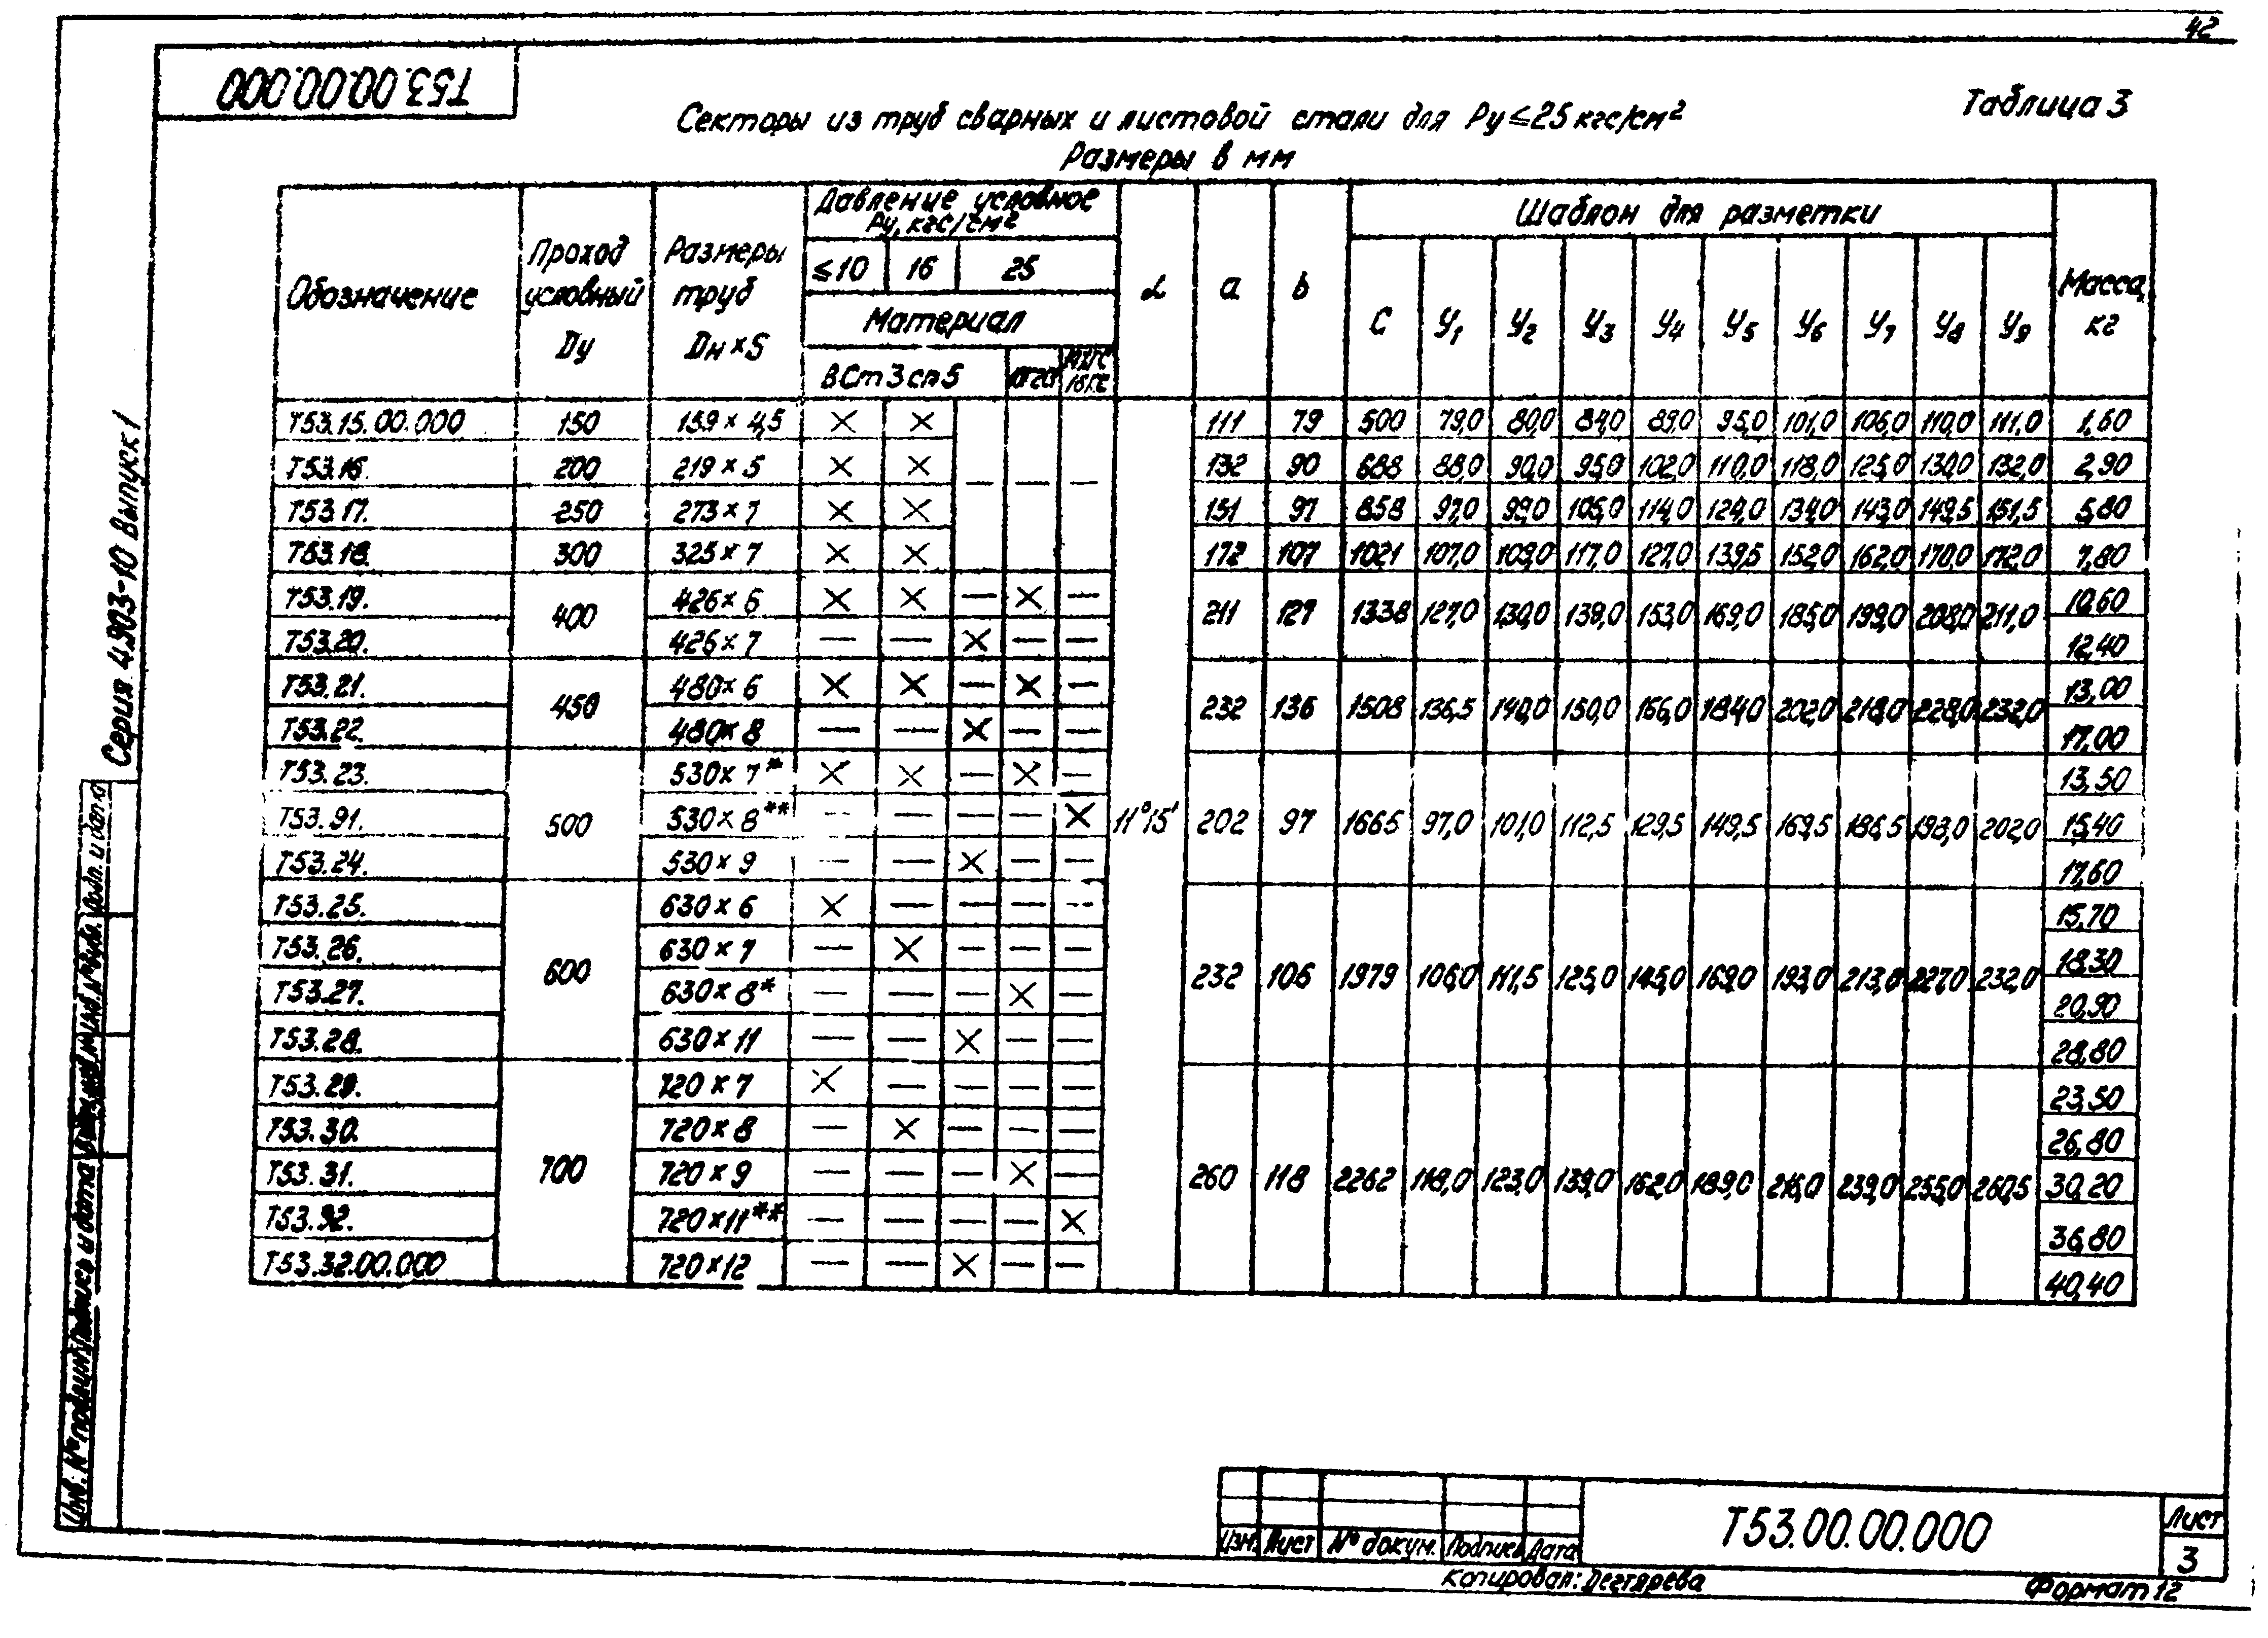 42
Т53.00.00.000
Таблица 3
Секторы из труб сварных и листовой стали для Ру ≤ 25 кгс/см²
Размеры в мм
Обозначение | Проход условный Ду | Размеры труб Dн×S | Давление условное Ру, кгс/см² | α | a | b | Шаблон для разметки | Масса, кг
≤10 | 16 | 25
Материал
ВСт3сп5 | 17ГС | 16ГС
C | У1 | У2 | У3 | У4 | У5 | У6 | У7 | У8 | У9
Т53.15.00.000 | 150 | 159×4,5 | × | × | 111 | 79 | 500 | 79,0 | 80,0 | 84,0 | 89,0 | 95,0 | 101,0 | 106,0 | 110,0 | 111,0 | 1,60
Т53.16. | 200 | 219×5 | × | × | — | — | — | 132 | 90 | 688 | 88,0 | 90,0 | 95,0 | 102,0 | 110,0 | 118,0 | 125,0 | 130,0 | 132,0 | 2,90
Т53.17. | 250 | 273×7 | × | × | 151 | 97 | 858 | 97,0 | 99,0 | 105,0 | 114,0 | 124,0 | 134,0 | 143,0 | 149,5 | 151,5 | 5,80
Т53.18. | 300 | 325×7 | × | × | 172 | 107 | 1021 | 107,0 | 109,0 | 117,0 | 127,0 | 139,5 | 152,0 | 162,0 | 170,0 | 172,0 | 7,80
Т53.19. | 400 | 426×6 | × | × | — | × | — | 211 | 127 | 1338 | 127,0 | 130,0 | 139,0 | 153,0 | 169,0 | 185,0 | 199,0 | 208,0 | 211,0 | 10,60
Т53.20. | 426×7 | — | — | × | — | — | 12,40
Т53.21. | 450 | 480×6 | × | × | — | × | — | 232 | 136 | 1508 | 136,5 | 140,0 | 150,0 | 166,0 | 184,0 | 202,0 | 218,0 | 228,0 | 232,0 | 13,00
Т53.22. | 480×8 | — | — | × | — | — | 17,00
Т53.23. | 500 | 530×7* | × | × | — | × | — | 11°15′ | 202 | 97 | 1665 | 97,0 | 101,0 | 112,5 | 129,5 | 149,5 | 169,5 | 186,5 | 198,0 | 202,0 | 13,50
Т53.91. | 530×8** | — | — | — | — | × | 15,40
Т53.24. | 530×9 | — | — | × | — | — | 17,60
Т53.25. | 600 | 630×6 | × | — | — | — | — | 232 | 106 | 1979 | 106,0 | 111,5 | 125,0 | 145,0 | 169,0 | 193,0 | 213,0 | 227,0 | 232,0 | 15,70
Т53.26. | 630×7 | — | × | — | — | — | 18,30
Т53.27. | 630×8* | — | — | — | × | — | 20,90
Т53.28. | 630×11 | — | — | × | — | — | 28,80
Т53.29. | 700 | 720×7 | × | — | — | — | — | 260 | 118 | 2262 | 118,0 | 123,0 | 139,0 | 162,0 | 189,0 | 216,0 | 239,0 | 255,0 | 260,5 | 23,50
Т53.30. | 720×8 | — | × | — | — | — | 26,80
Т53.31. | 720×9 | — | — | — | × | — | 30,20
Т53.92. | 720×11** | — | — | — | — | × | 36,80
Т53.32.00.000 | 720×12 | — | — | × | — | — | 40,40
Серия 4.903-10 Выпуск 1
Подп. и дата
Подпись и дата
Инв. № подлин.
Изм. | Лист | № докум. | Подпись | Дата
Т53.00.00.000
Лист
3
Копировал: Дегтярева
Формат 12